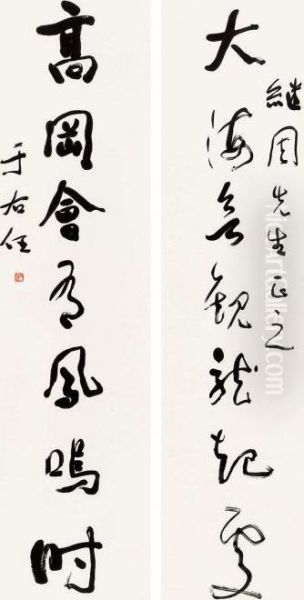 繼周先生正之
大海觀龍起處
高岡會有鳳鳴時
于右任